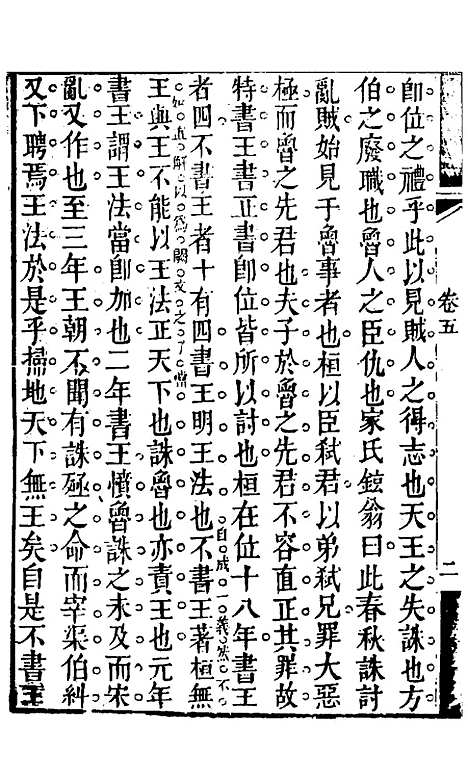 卷五
二
卽位之禮乎此以見賊人之得志也天王之失誅也方
伯之廢職也魯人之臣仇也家氏鉉翁曰此春秋誅討
亂賊始見于魯事者也桓以臣弑君以弟弑兄罪大惡
極而魯之先君也夫子於魯之先君不容直正其罪故
特書王書正書卽位皆所以討也桓在位十八年書王
者四不書王者十有四書王明王法也不書王著桓無
自成一義法不
如直解以爲闕文之了當
王與王不能以王法正天下也誅魯也亦責王也元年
書王謂王法當卽加也二年書王憤魯誅之未及而宋
亂又作也至三年王朝不聞有誅殛之命而宰渠伯糾
又下聘焉王法於是乎掃地天下無王矣自是不書王